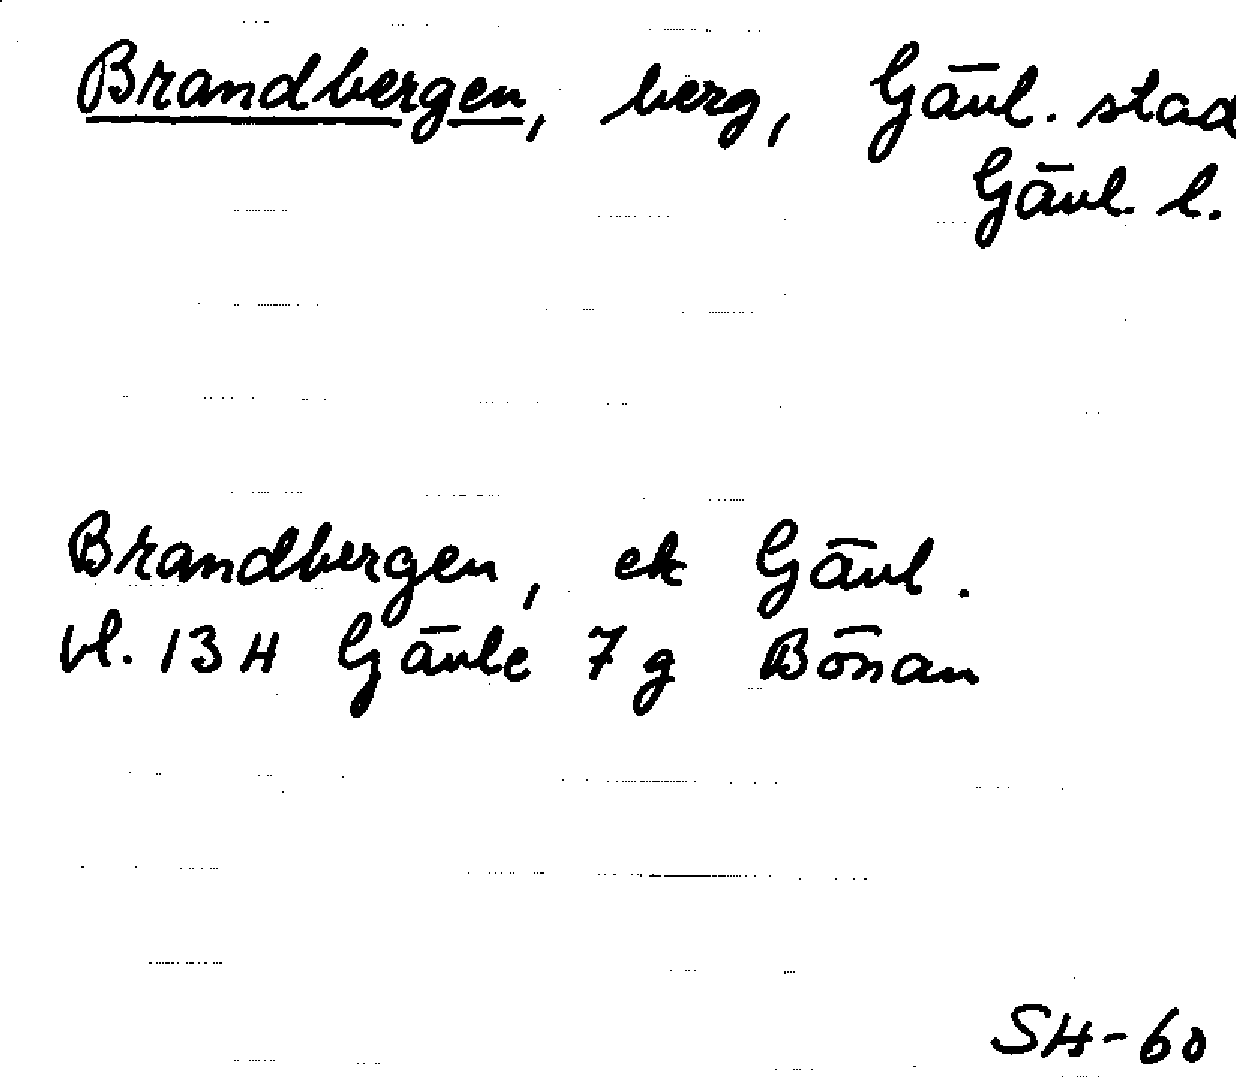 Brandbergen, berg, Gävl. stad
Gävl. l.
Brandbergen, ek Gävl.
vl. 13 H Gävle 7 g Bönan
SH-60